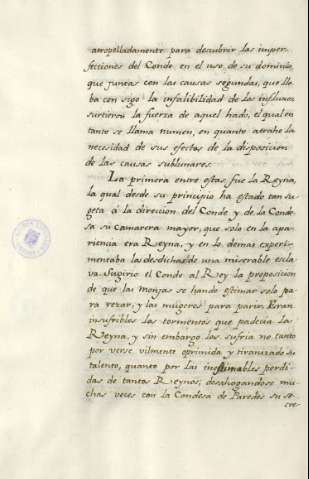 atropelladamente para descubrir las imper-
fectiones del Conde en el uso, de su dominio,
que juntas con las causas segundas, que lle
ba con sigo la infalibilidad de los influxos
surtieron la fuerza de aquel hado, el qual en
tanto se llama numen, en quanto atrahe la
necesidad de sus efectos de la disposicion
de las causas sublunares.
La primera entre estas fue la Reyna,
la qual desde su principio ha estado tan su
geta á la direcion del Conde y de la Conde
sa su camarera mayor, que solo en la apa-
riencia era Reyna, y en lo demas experi-
mentaba las desdichas de una miserable escla
va. Sugirio el Conde al Rey la proposicion
de que las Monjas se han de estimar solo pa
ra rezar, y las mugeres para parir. Eran
insufribles los tormentos que padecia la
Reyna, y sin embargo los sufria no tanto
por verse vilmente oprimida y tiranizado su
talento, quanto por las inestimables perdi-
das de tantos Reynos; desahogandose mu-
chas veces con la Condesa de Paredes su se-
cre-